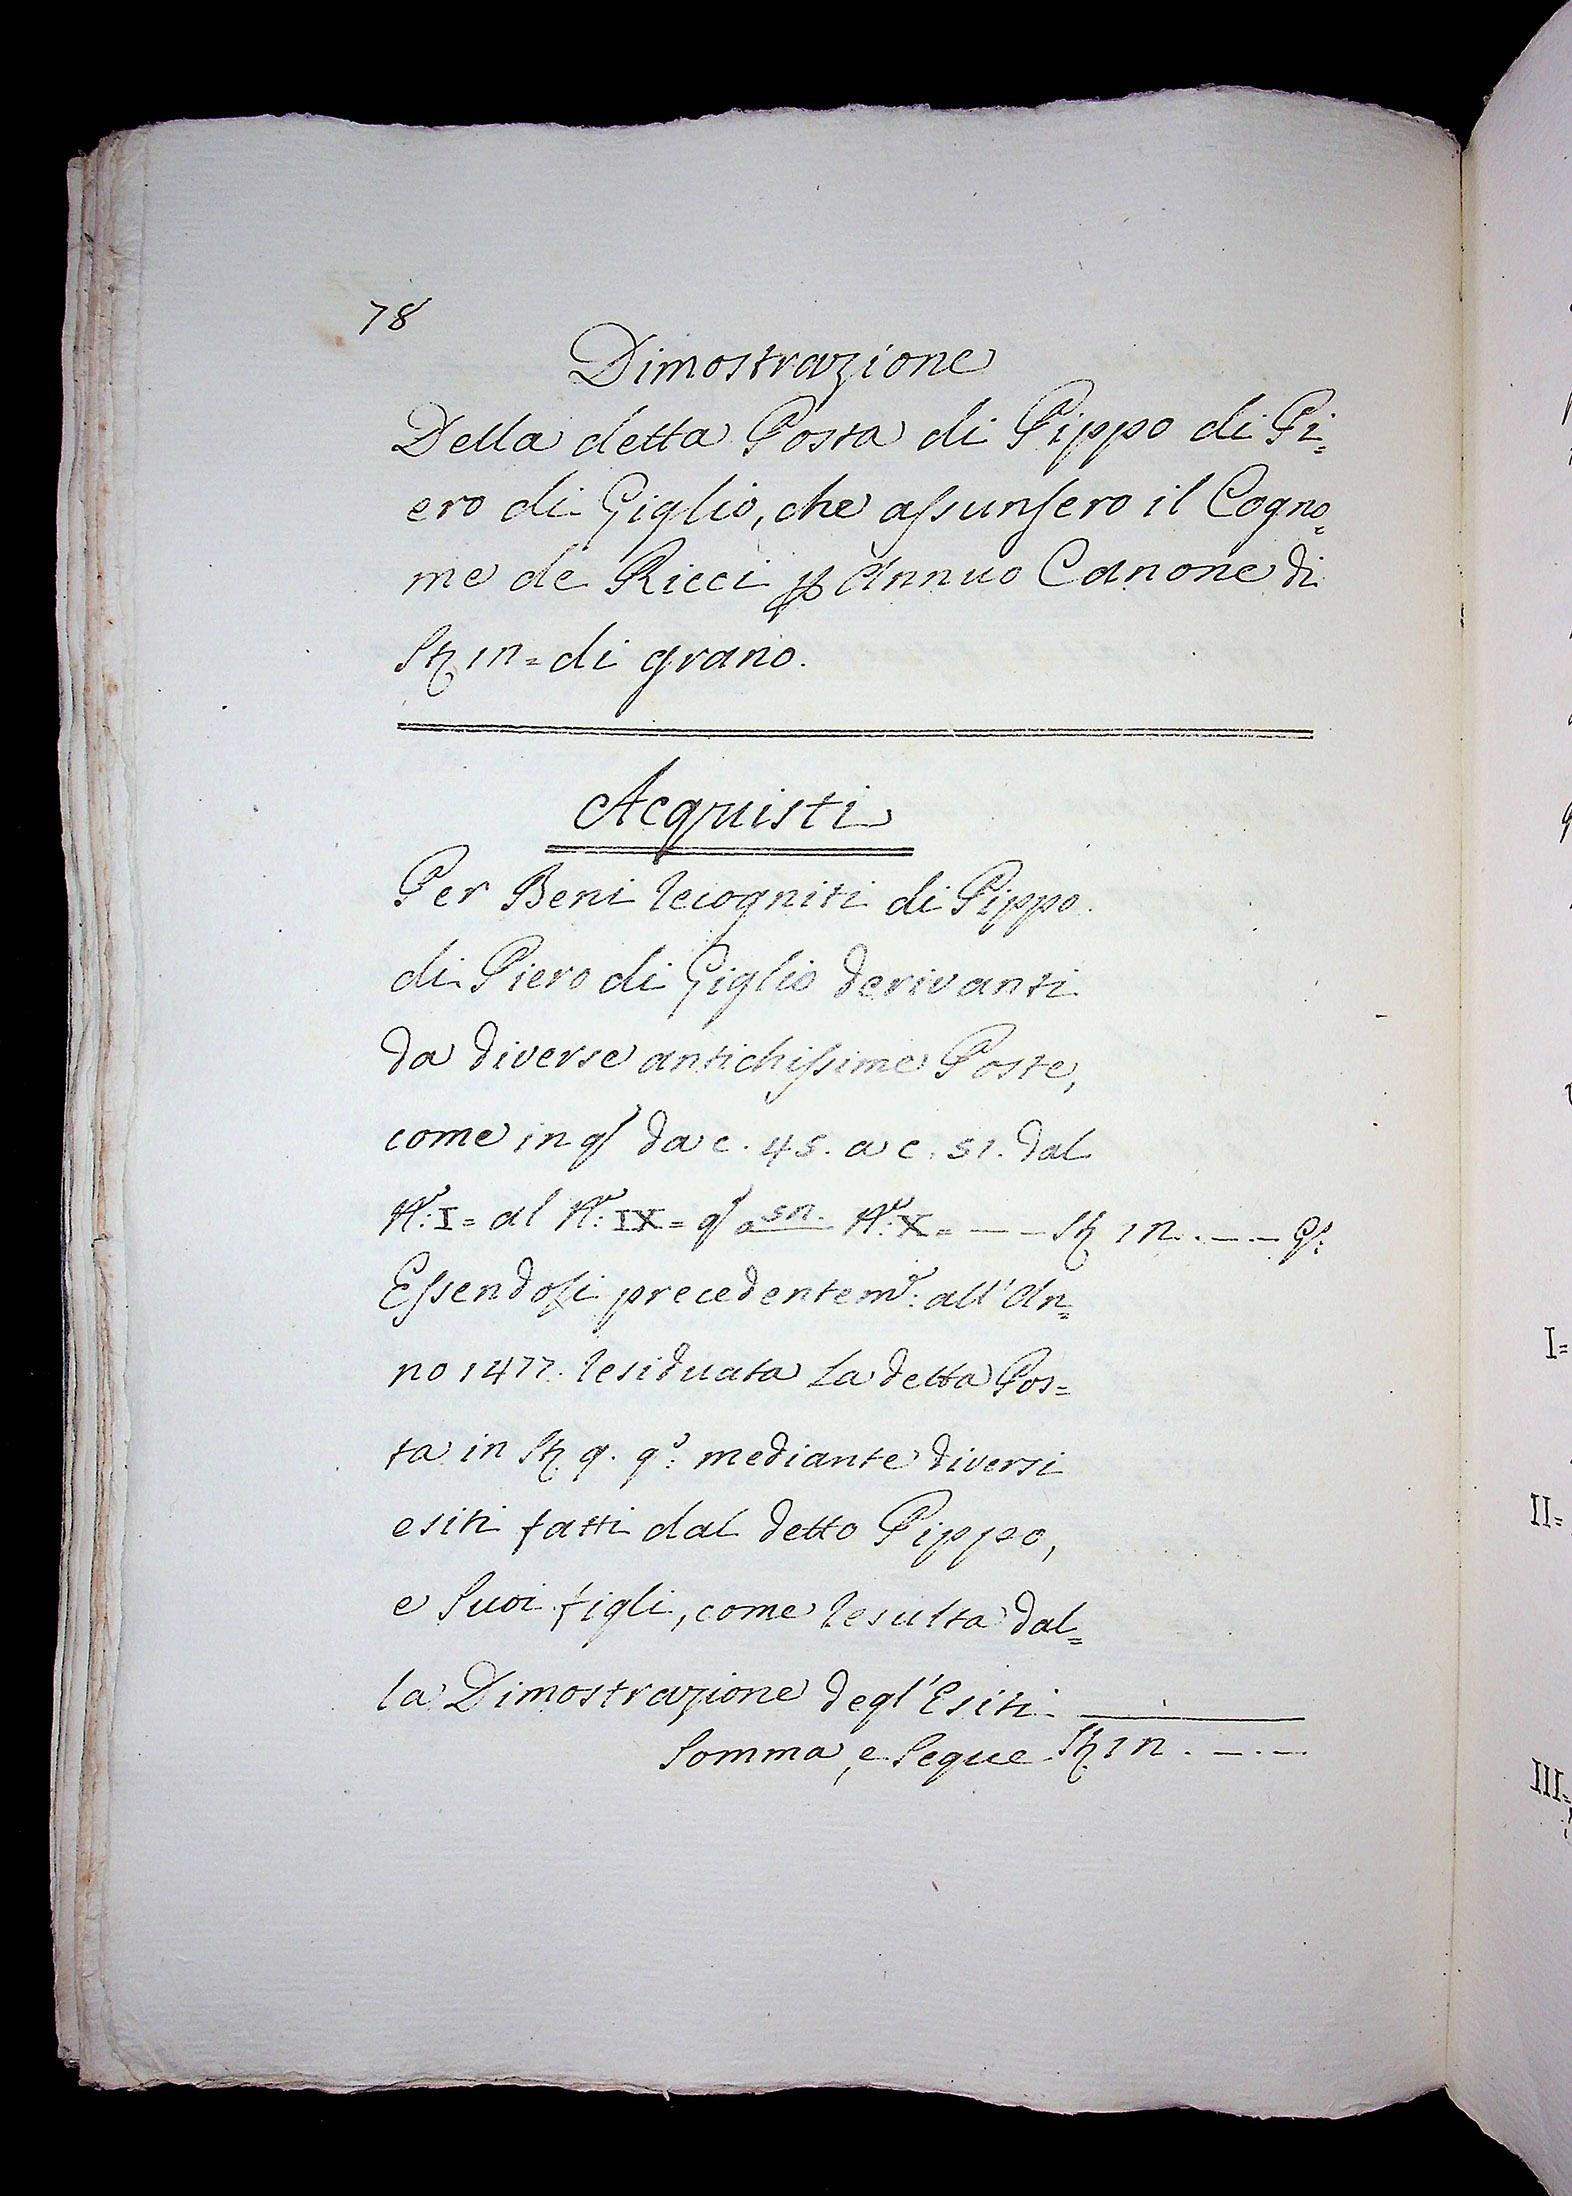 78
Dimostrazione
Della detta Posta di Pippo di Pi=
ero di Giglio, che assunsero il Cogno=
me de Ricci p Annuo Canone di
St 1n = di grano.
Acquisti
Per Beni recogniti di Pippo
di Piero di Giglio derivanti
da diverse antichissime Poste,
come in q da c. 45. a c. 51. dal
N.º: I = al N.º: IX = q a 5n. N.º: X = — — St 1n. — . —
Essendosi precedentem.e: all'An=
no 1477. residuata La detta Pos=
ta in St q. q.º: mediante diversi
esiti fatti dal detto Pippo,
e Suoi figli, come resulta dal=
la Dimostrazione degl'Esiti
Somma, e Segue St 1n. — . —
I=
II=
III=